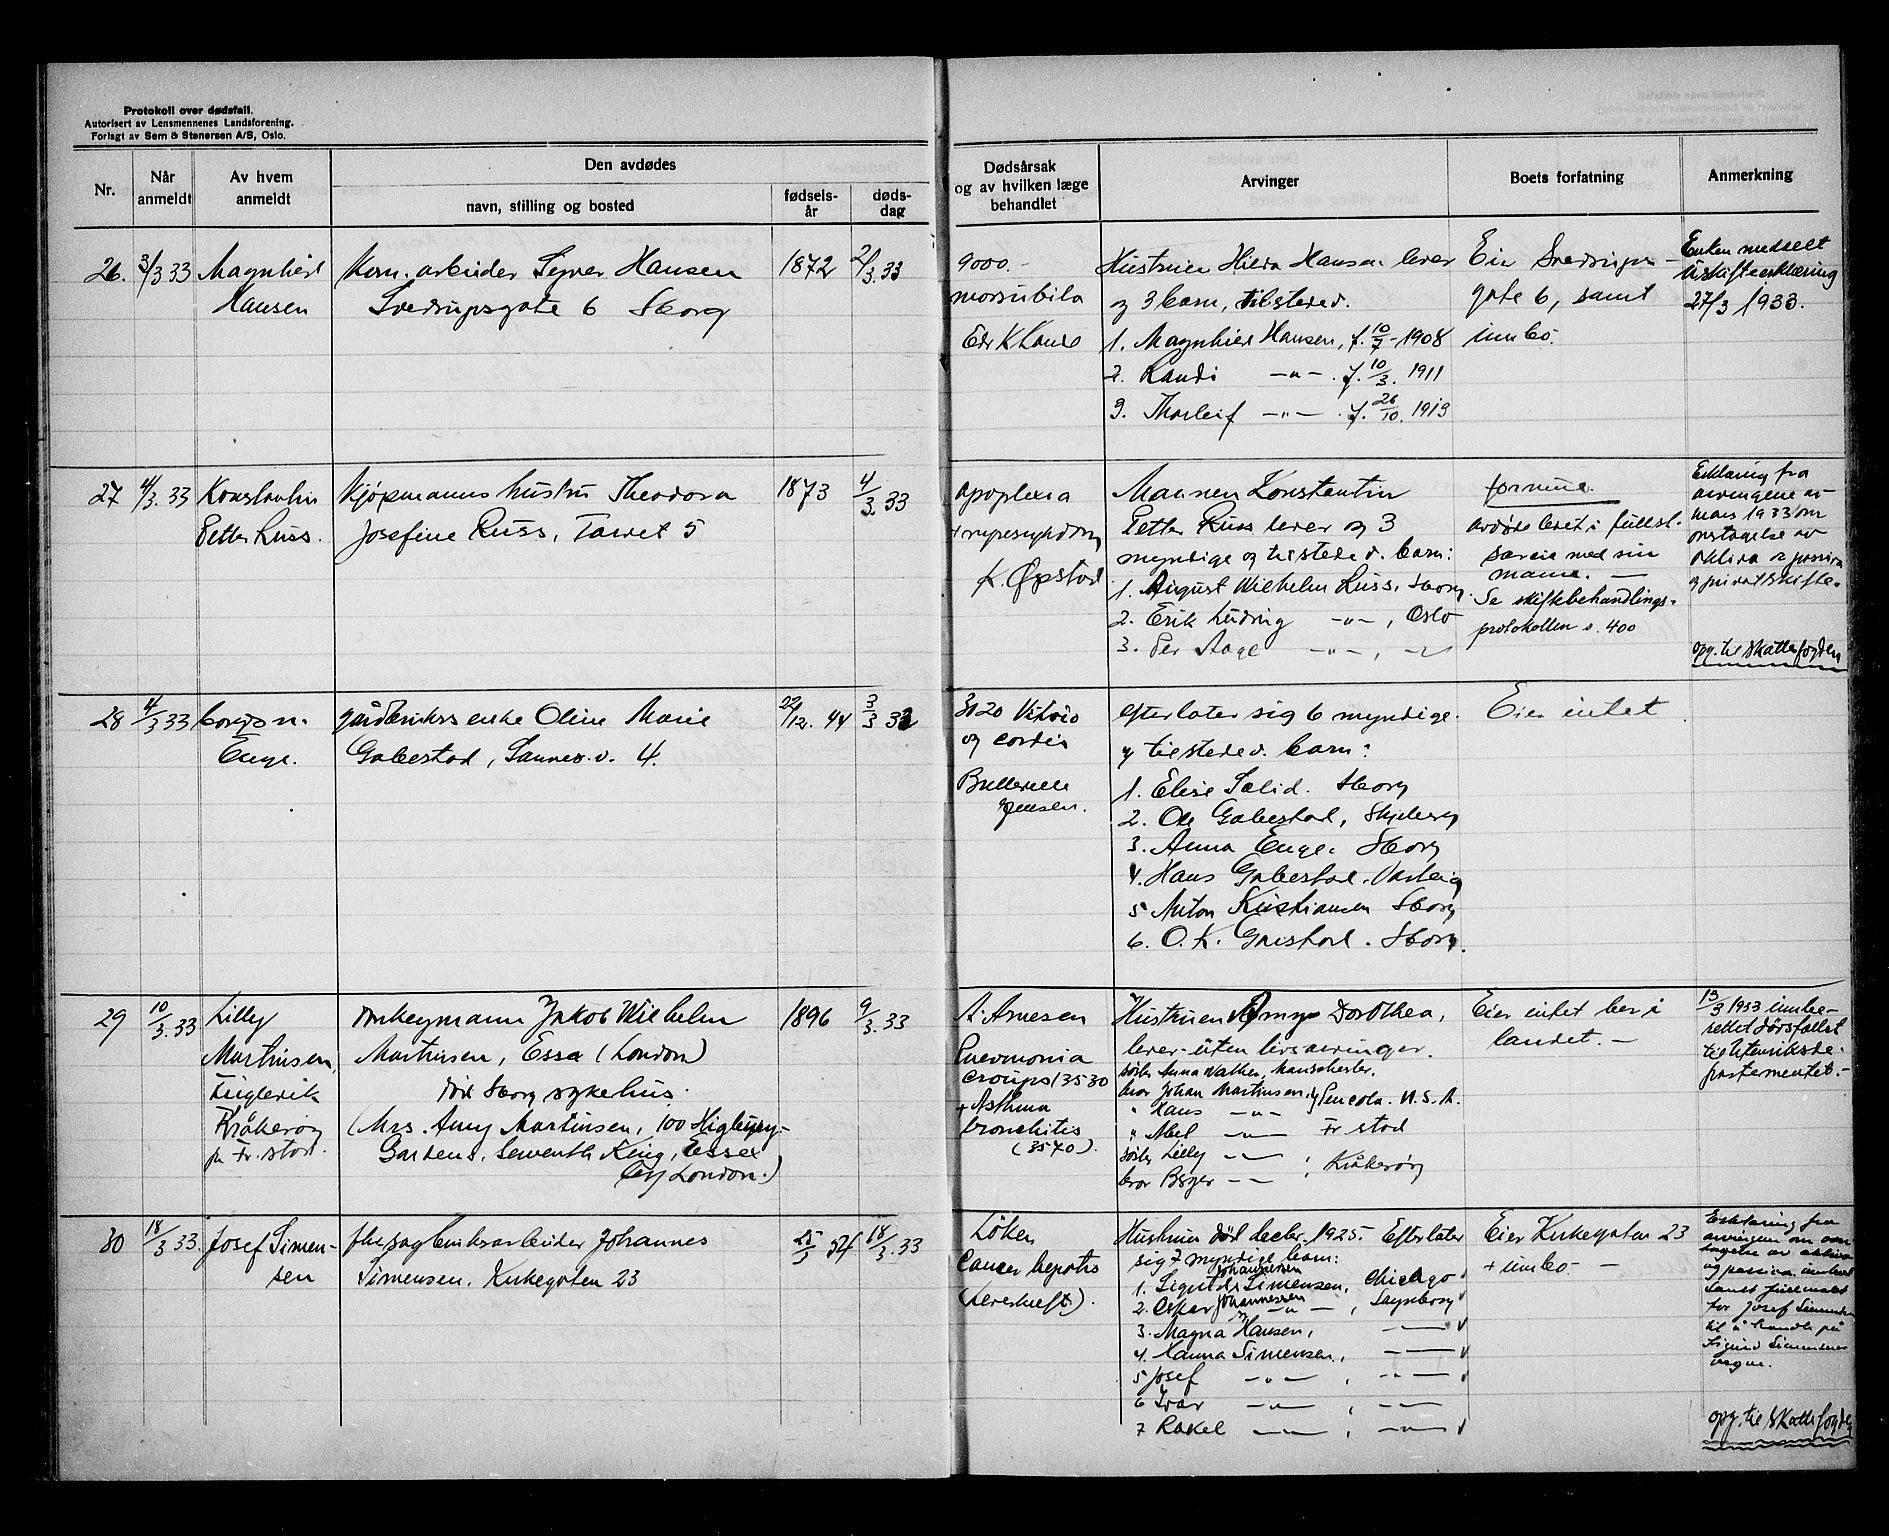 Protokoll over dødsfall.
Autorisert av Lensmennenes Landsforening.
Forlagt av Sem & Stenersen A/S, Oslo.
Nr.
Når
anmeldt
Av hvem
anmeldt
Den avdødes
navn, stilling og bosted
fødsels-
år
døds-
dag
Dødsårsak
og av hvilken læge
behandlet
Arvinger
Boets forfatning
Anmerkning
26. 3/3 33 Magnhild
Hansen
Kom. arbeider Hansen
Sverdrupsgate 6 Sborg
1872 2/3. 33
9000. -
mors subita
Hustruen Hilda Hansen lever
og 3 barn, tilstede v.
1. Magnhild Hansen, f. 10/7 - 1908
2. Randi —"— . f. 10/3. 1911
3. Thorleif —"— . f. 26/10. 1913
Eier Sverdrups-
gate 6, samt
innbo.
Enken meddelt
uskifteerklæring
27/3 1933.
27 4/3. 33 Konstantin
Petter Russ.
Kjøpmanns hustru Theodora
Josefine Russ, Torvet 5
1873 4/3. 33
apoplexia
+ nyresykdom
K. Øpstad
Mannen Konstantin
Petter Russ lever og 3
myndige og tilstede v. barn:
1. August Wilhelm Russ, Sborg.
2. Erik Ludvig —"— , Oslo
3. Per Aage —"— , —"—
formue.
avdøde levet i fullst.
særeie med sin
mann. —
Se skiftebehandlings-
protokollen s. 400
Erklæring fra
arvingene av
mars 1933 om
overtagelse av
aktiva og passiva
og privat skifte.
opg. til skattefogden
28 4/3 33
Enge.
gårdbrukers enke Oline Marie
Gabestad, Sannes.v. 4.
22/12. 44 3/3 33
3120 Vitrio
og cordis
Jensen.
efterlater sig 6 myndige
og tilstede v. barn:
1. Elise Solid. Sborg
2. Ole Gabestad, Skjeberg
3. Anna Enge. Sborg
4. Hans Gabestad. Varteig
5 Anton Kristiansen Sborg
6. O. K. . Sborg.
Eier intet
29 10/3. 33 Lilly
Martinsen,
Kråkerøy
pr. Fr.stad.
Donkeymann Jakob Wilhelm
Martinsen, Essex (London)
død Sborg sykehus.
(Mrs. Amy Martinsen, 100
Gardens. King, Essex
London.)
1896 9/3. 33
A. Arnesen
Pneumonia
croups (3530
+ Asthma
bronchitis
(3570).
Hustruen Amy Dorothea,
lever - uten livsarvinger.
søster Anna Walker, Manschester.
bror Johan Martinsen, U.S.A.
" Hans —"—
" Abel —"— Fr.stad
søster Lilly —"—
bror Birger —"— , Kråkerøy
Eier intet her i
landet. —
13/3 1933 innbe-
rettet dødsfallet
til Utenriksde-
partementet. -
30 18/3 33. Josef Simen-
sen
Johannes
Simensen. Kirkegaten 23
25/5 54 18/3. 33
Løken
Cancer hepatis
(leverkreft).
Hustruen død decbr. 1925. Efterlater
sig 7 myndige barn:
Johannesen
1. Simensen, Chicago
Johannessen
2. Oskar —"— , Sarpsborg
3. Magna Hansen, —"—
4. Hanna Simensen, —"—
5 Josef —"— , —"—
6 Ivar —"— , —"—
7 Rakel —"— , —"—
Eier Kirkegaten 23
+ innbo -
Erklæring fra
arvingene om over-
tagelse av aktiva
og passiva
samt fuldmakt
for Josef Simensen
til å handle på
Sigurd Simensens
vegne.
opg. til skattefogden